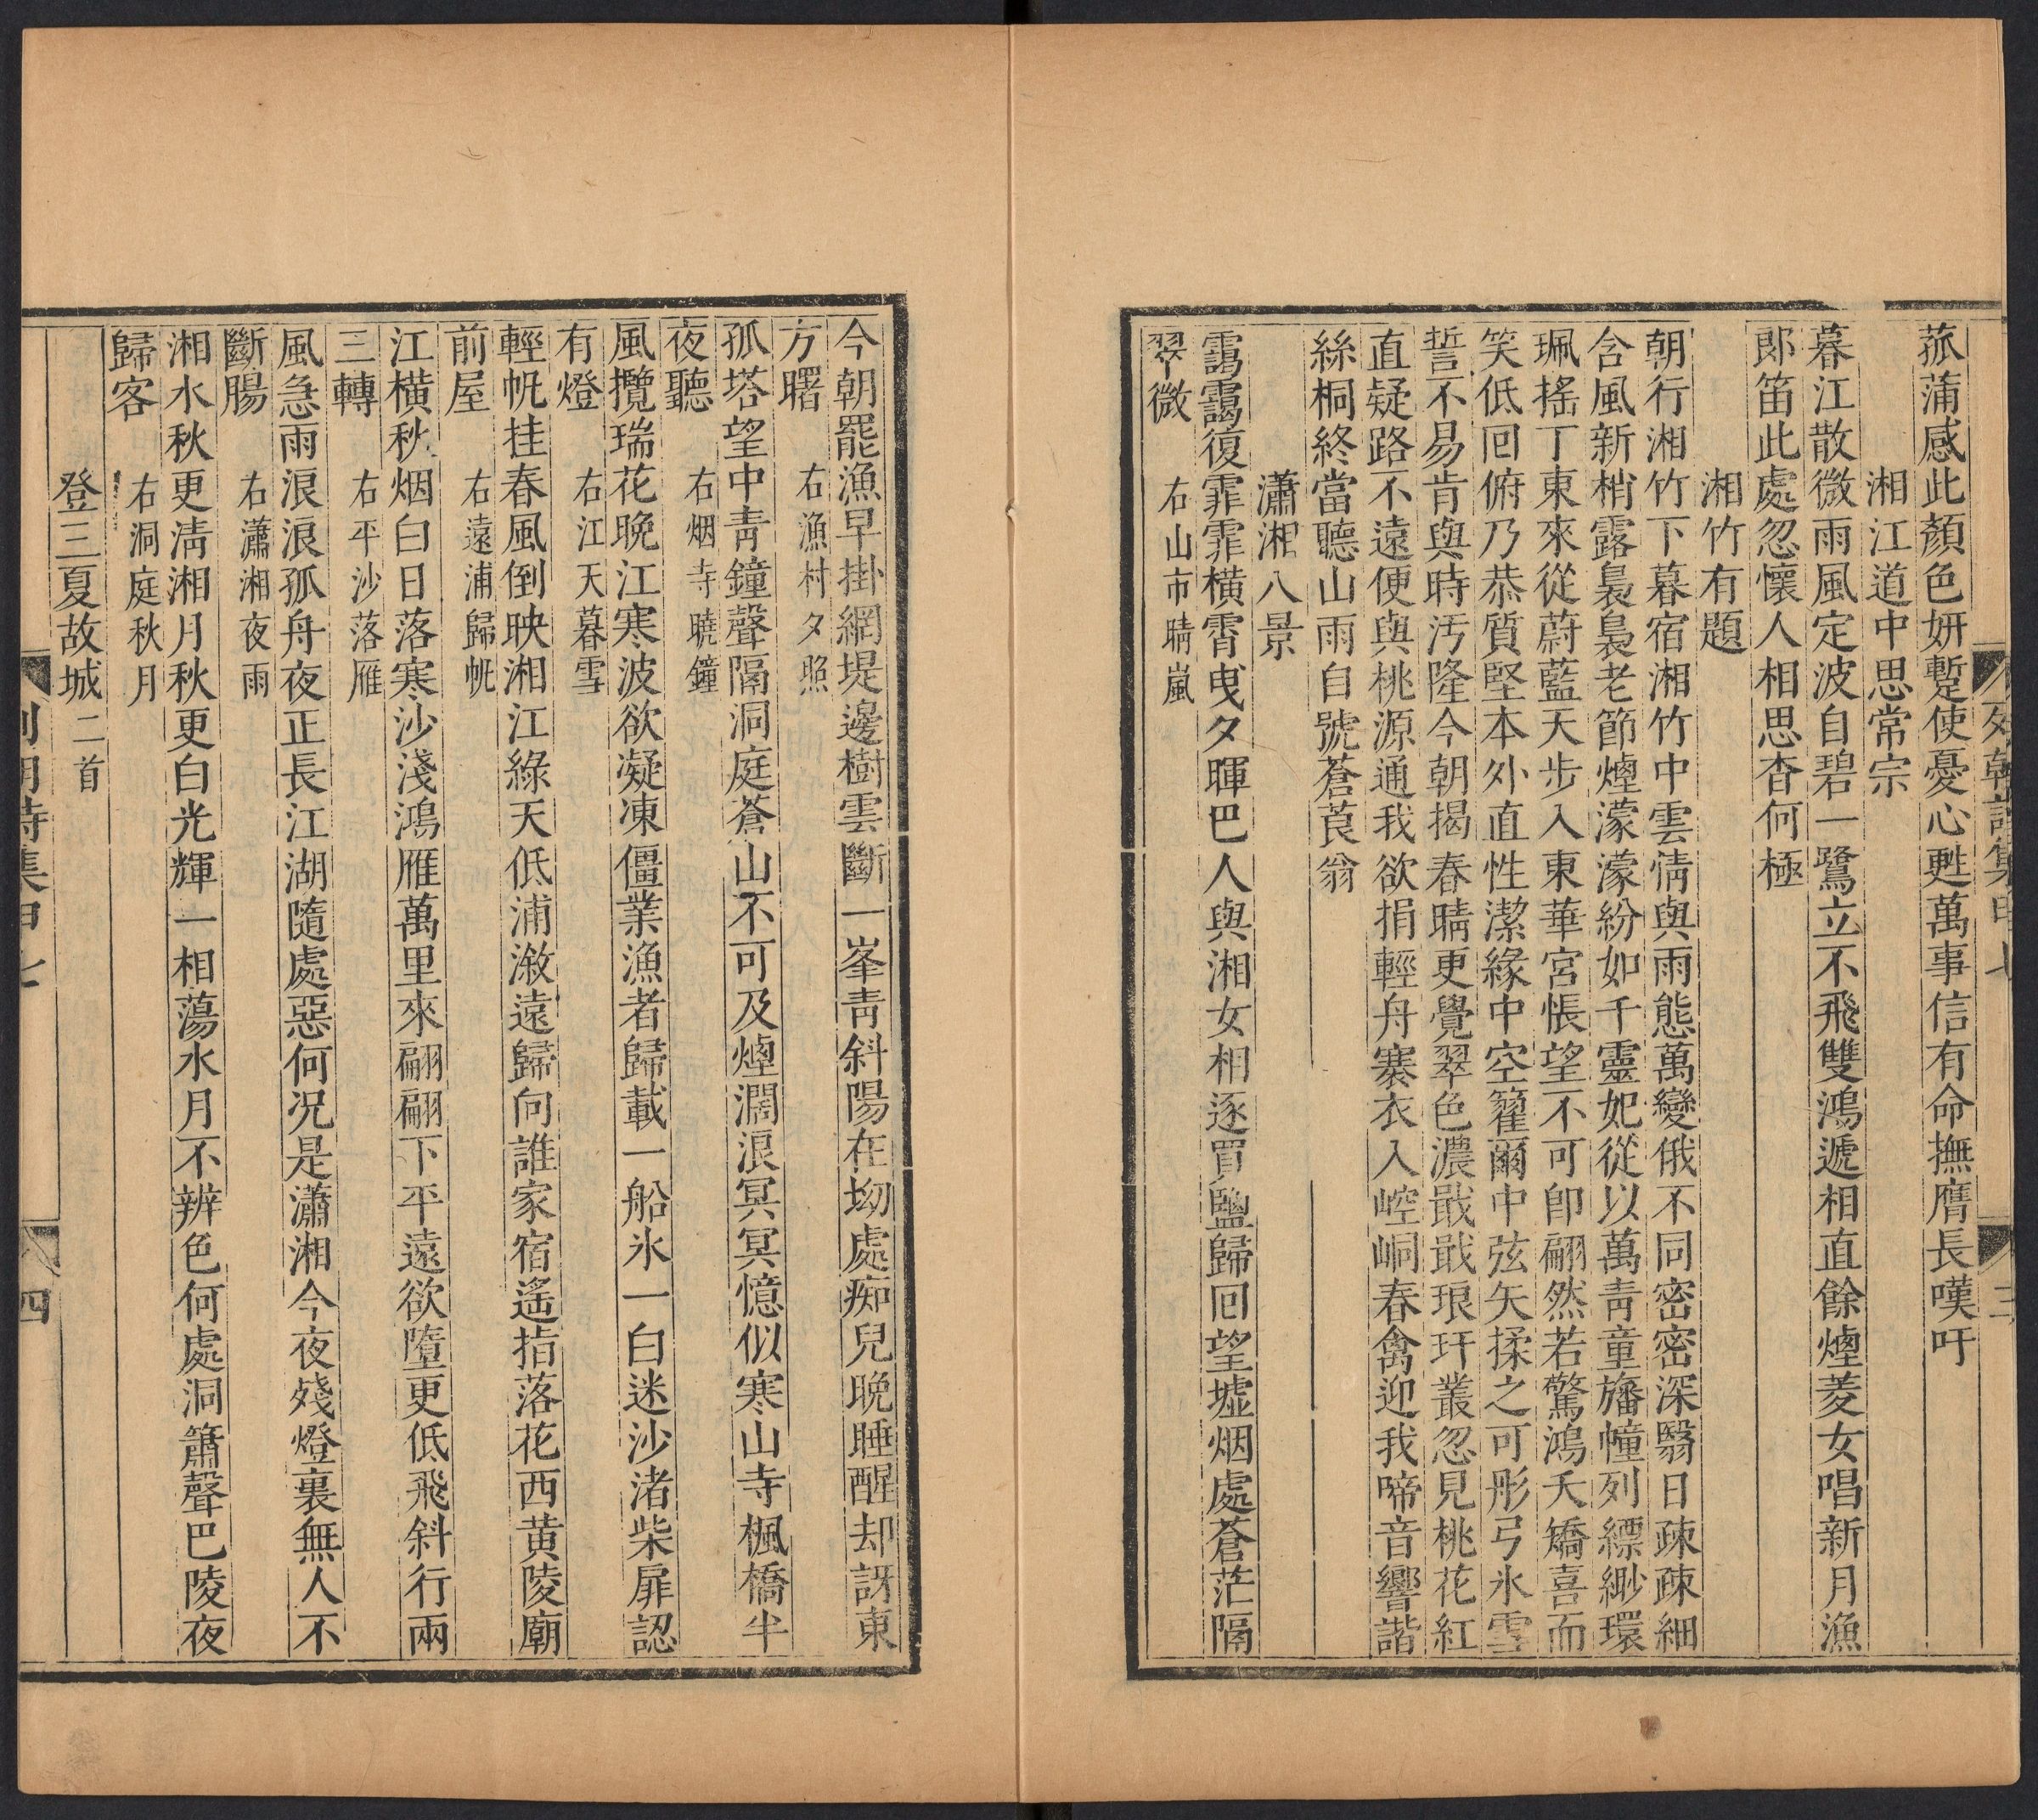 菰蒲感此顏色妍蹔使憂心甦萬事信有命撫膺長嘆吁
湘江道中思常宗
暮江散微雨風定波自碧一鷺立不飛雙鴻遞相直餘煙菱女唱新月漁
郞笛此處忽懷人相思杳何極
湘竹有題
朝行湘竹下暮宿湘竹中雲情與雨態萬變俄不同密密深翳日疎疎細
含風新梢露裊裊老節煙濛濛紛如千靈妃從以萬靑童旛幢列縹緲環
珮搖丁東來從蔚藍天步入東華宮悵望不可卽翩然若驚鴻夭矯喜而
笑低回俯乃恭質堅本外直性潔緣中空籊爾中弦矢揉之可彤弓氷雪
誓不易肯與時汚隆今朝揭春晴更覺翠色濃戢戢琅玕叢忽見桃花紅
直疑路不遠便與桃源通我欲捐輕舟褰衣入崆峒春禽迎我啼音響諧
絲桐終當聽山雨自號蒼莨翁
瀟湘八景
靄靄復霏霏橫霄曳夕暉巴人與湘女相逐買鹽歸回望墟烟處蒼茫隔
翠微 右山市晴嵐
今朝罷漁早掛網堤邊樹雲斷一峯靑斜陽在坳處痴兒晚睡醒却訝東
方曙 右漁村夕照
孤塔望中靑鐘聲隔洞庭蒼山不可及煙濶浪冥冥憶似寒山寺楓橋半
夜聽 右烟寺曉鐘
風攪瑞花晚江寒波欲凝凍僵業漁者歸載一船氷一白迷沙渚柴扉認
有燈 右江天暮雪
輕帆挂春風倒映湘江綠天低浦漵遠歸向誰家宿遙指落花西黃陵廟
前屋 右遠浦歸帆
江橫秋烟白日落寒沙淺鴻雁萬里來翩翩下平遠欲墮更低飛斜行兩
三轉 右平沙落雁
風急雨浪浪孤舟夜正長江湖隨處惡何況是瀟湘今夜殘燈裏無人不
斷腸 右瀟湘夜雨
湘水秋更淸湘月秋更白光輝一相蕩水月不辨色何處洞簫聲巴陵夜
歸客 右洞庭秋月
登三夏故城二首
四